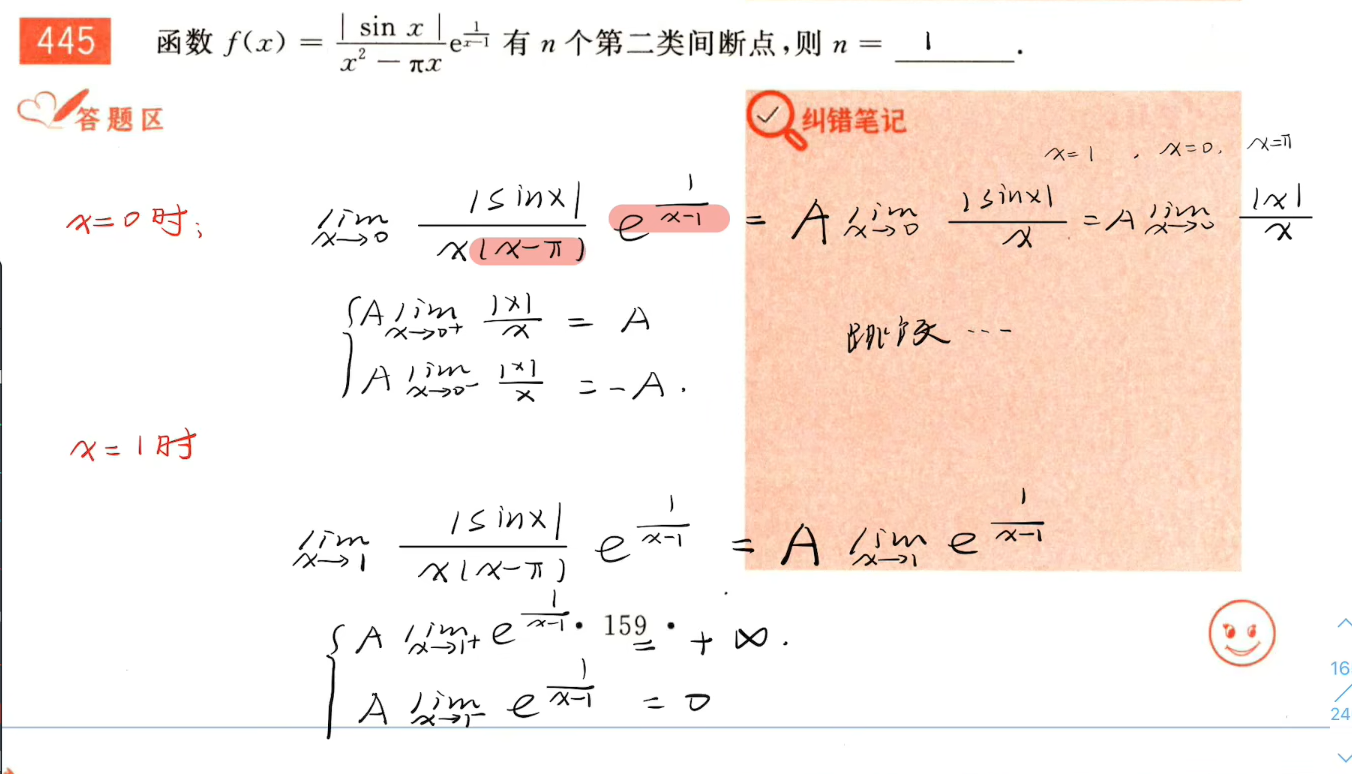 445 函数 f(x) = |sin x| / (x² − πx) e^(1/(x−1)) 有 n 个第二类间断点,则 n = 1 .
答题区
纠错笔记
x=1 , x=0, x=π
x=0时; lim x→0 |sinx| / x(x−π) e^(1/(x−1)) = A lim x→0 |sinx| / x = A lim x→0 |x| / x
A lim x→0+ |x| / x = A
跳跃 ...
A lim x→0− |x| / x = −A .
x=1时
lim x→1 |sinx| / x(x−π) e^(1/(x−1)) = A lim x→1 e^(1/(x−1))
A lim x→1+ e^(1/(x−1)) = +∞ .
• 159 •
A lim x→1− e^(1/(x−1)) = 0
16
24